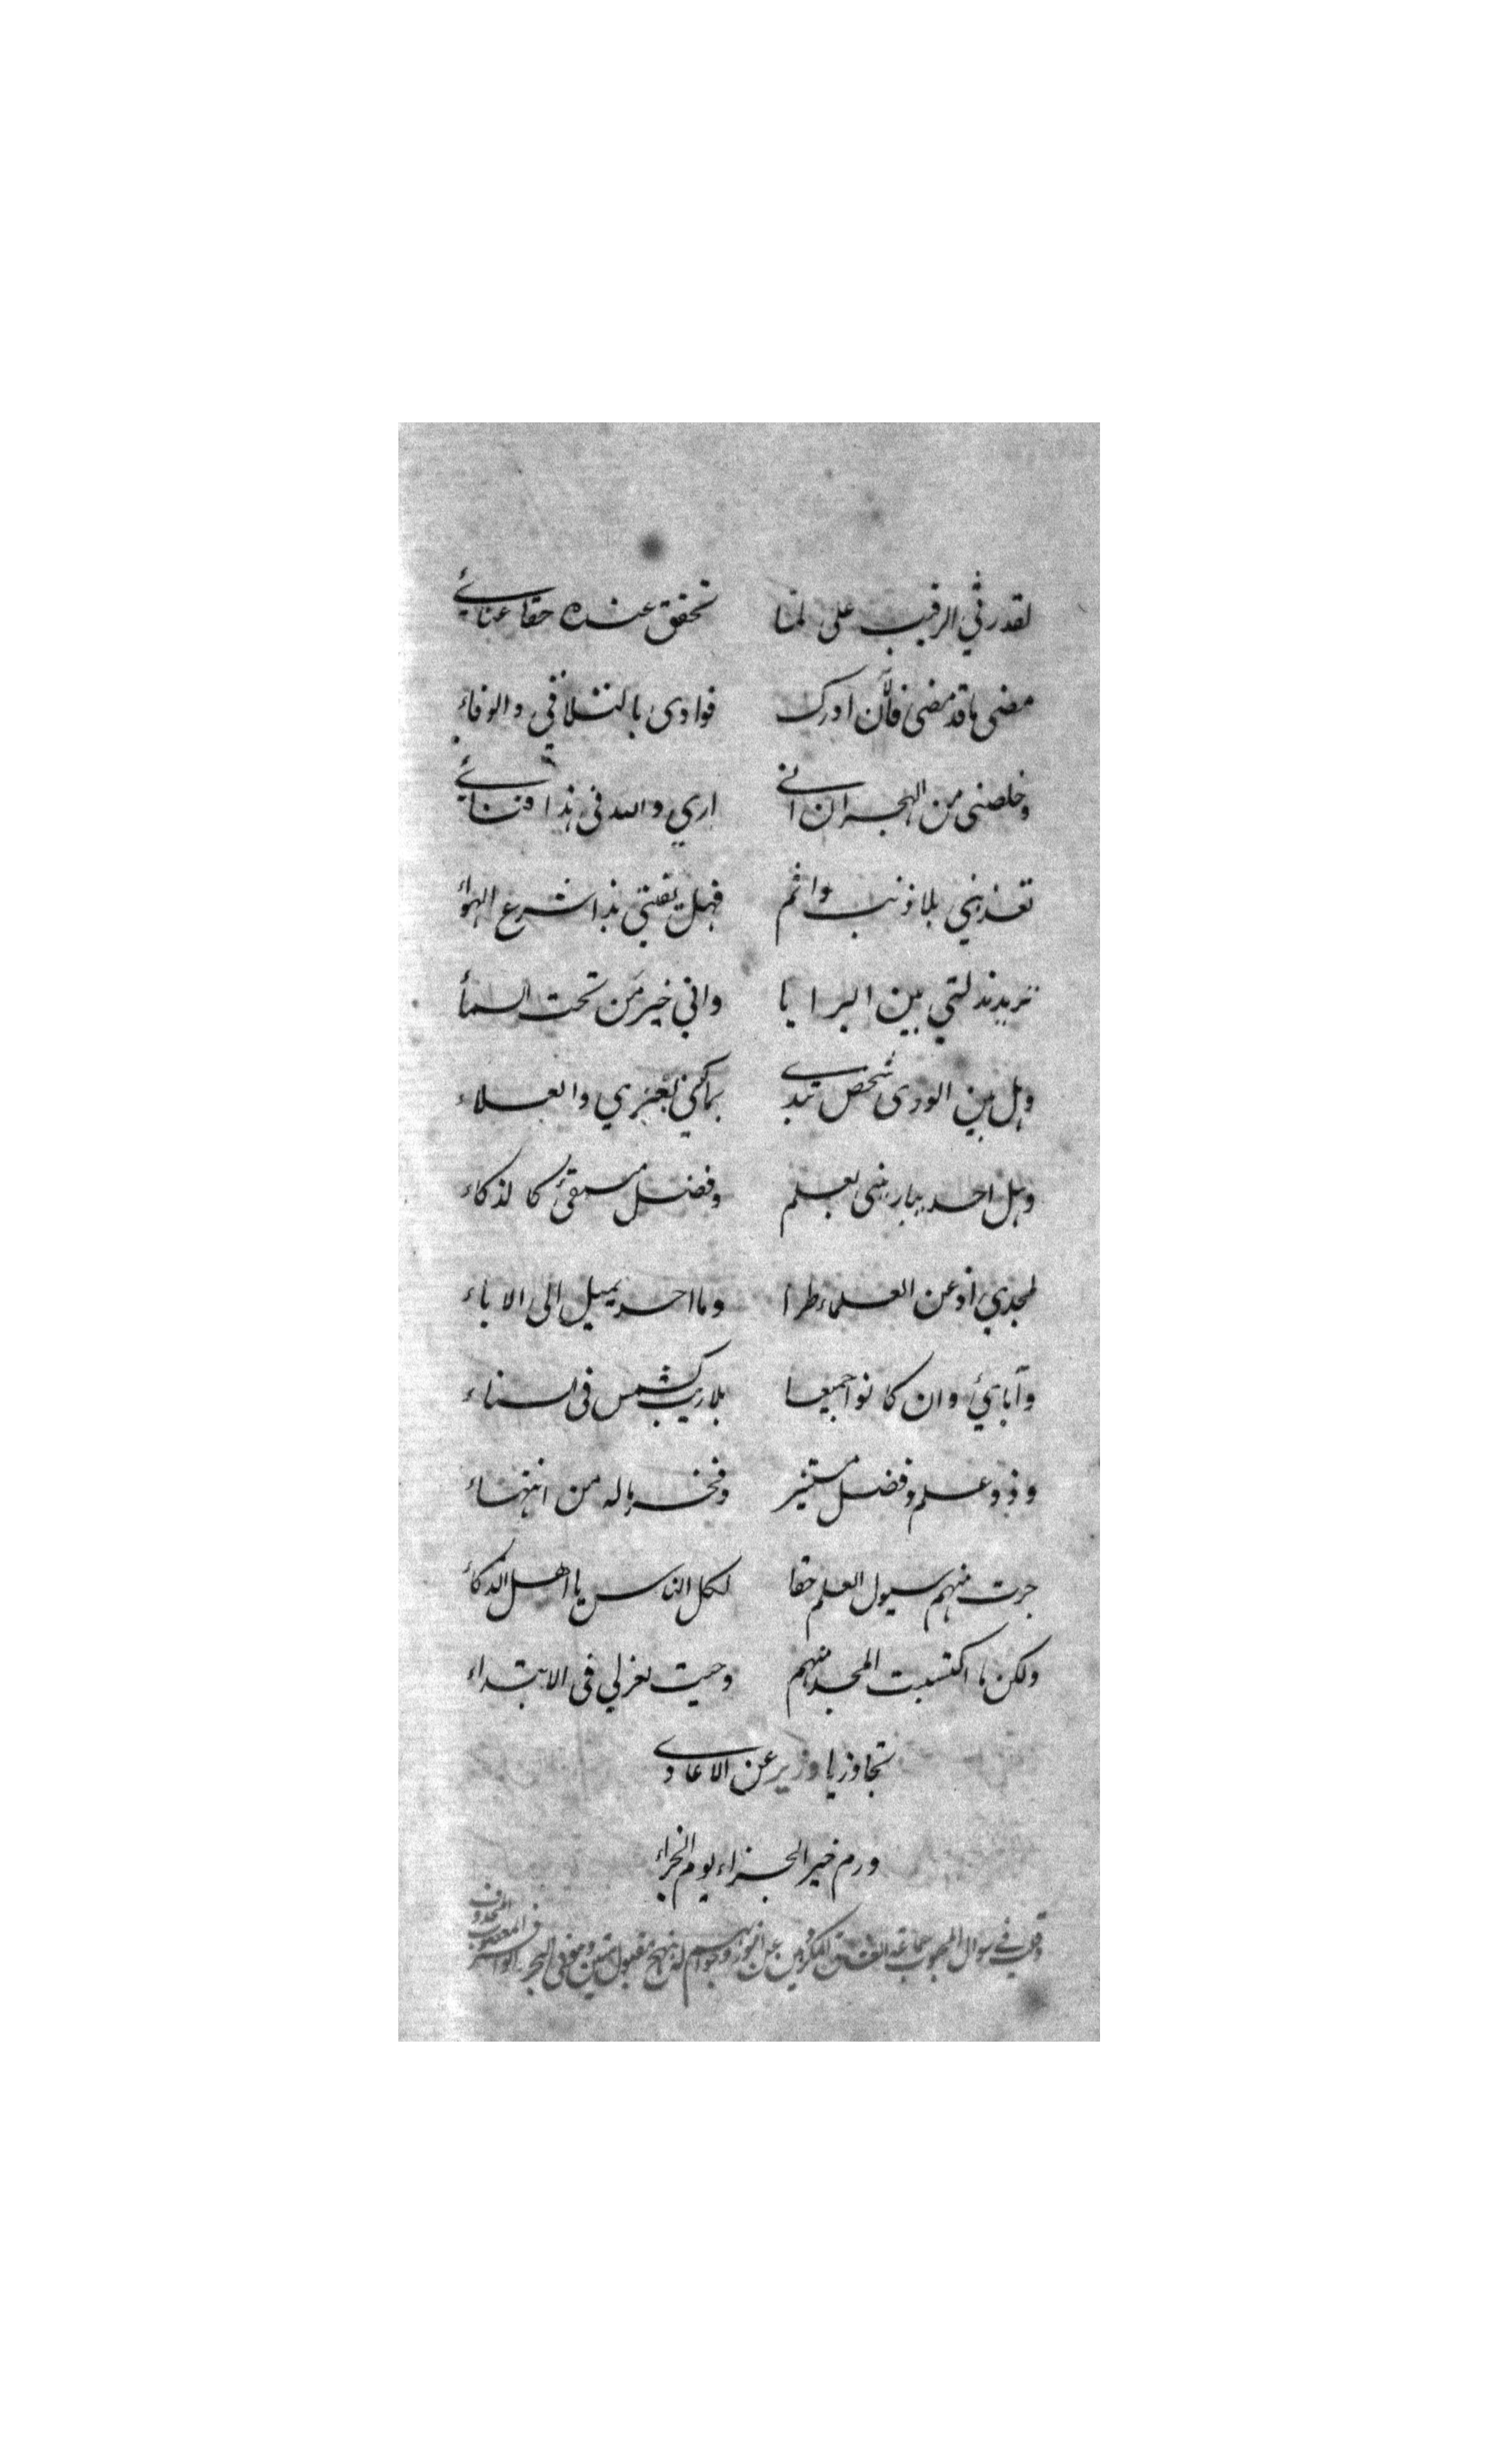 لقد رثي الرقيب على لما تحقق عنده حقا عنائي
مضى ما قد مضى فالآن ادرك فوادى بالتلافي والوفاء
وخلصني من الهجران اني اري والله في هذا فنائي
تعذبني بلا ذنب واثم فهل يفتي بذا شرع الهواء
تريد مذلتي بين البرايا واني خير من تحت السمأ
وهل بين الورى شخص تبدى بعزي والعلاء
وهل احد يباريني بعلم وفضل كالذكاء
لمجدي اذعن العلماء طرا وما احد يميل الى الاباء
وآبائي وان كانوا جميعا بلا ريب كشمس في السناء
وذو وعلم وفضل مستنير وفخر ما له من انتهاء
جرت منهم سيول العلم حقا لكل الناس يا اهل الذكاء
ولكن ما اكتسبت المجد منهم وحيت لعزلي في الابتداء
تجاوز يا وزير عن الاعادى
ورم خير الجزاء يوم الجزاء
وقلت في سوال المحبوب عن وجوابهم له بنهج مقبول متين وهو في البحر الوافر